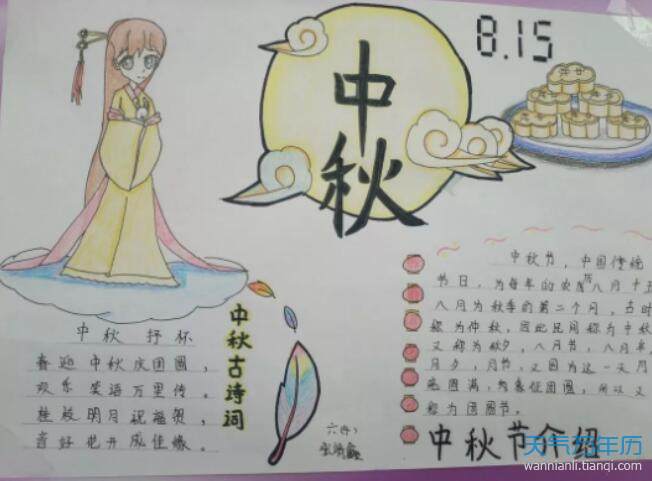 中秋
8.15
中秋 抒怀
喜迎中秋庆团圆,
欢乐笑语万里传。
桂殿明月祝福贺,
喜好花开成佳缘。
中秋古诗词
六(4)
中秋节,中国传统
节日,为每年的农历八月十五
八月为秋季的第二个月,古时
称为仲秋,因此民间称为中秋
又称为秋夕,八月节,八月半,
月夕,月节,又因为这一天月
亮圆满,象征团圆,所以又
称为团圆节。
中秋节介绍
天气万年历
wannianli.tianqi.com